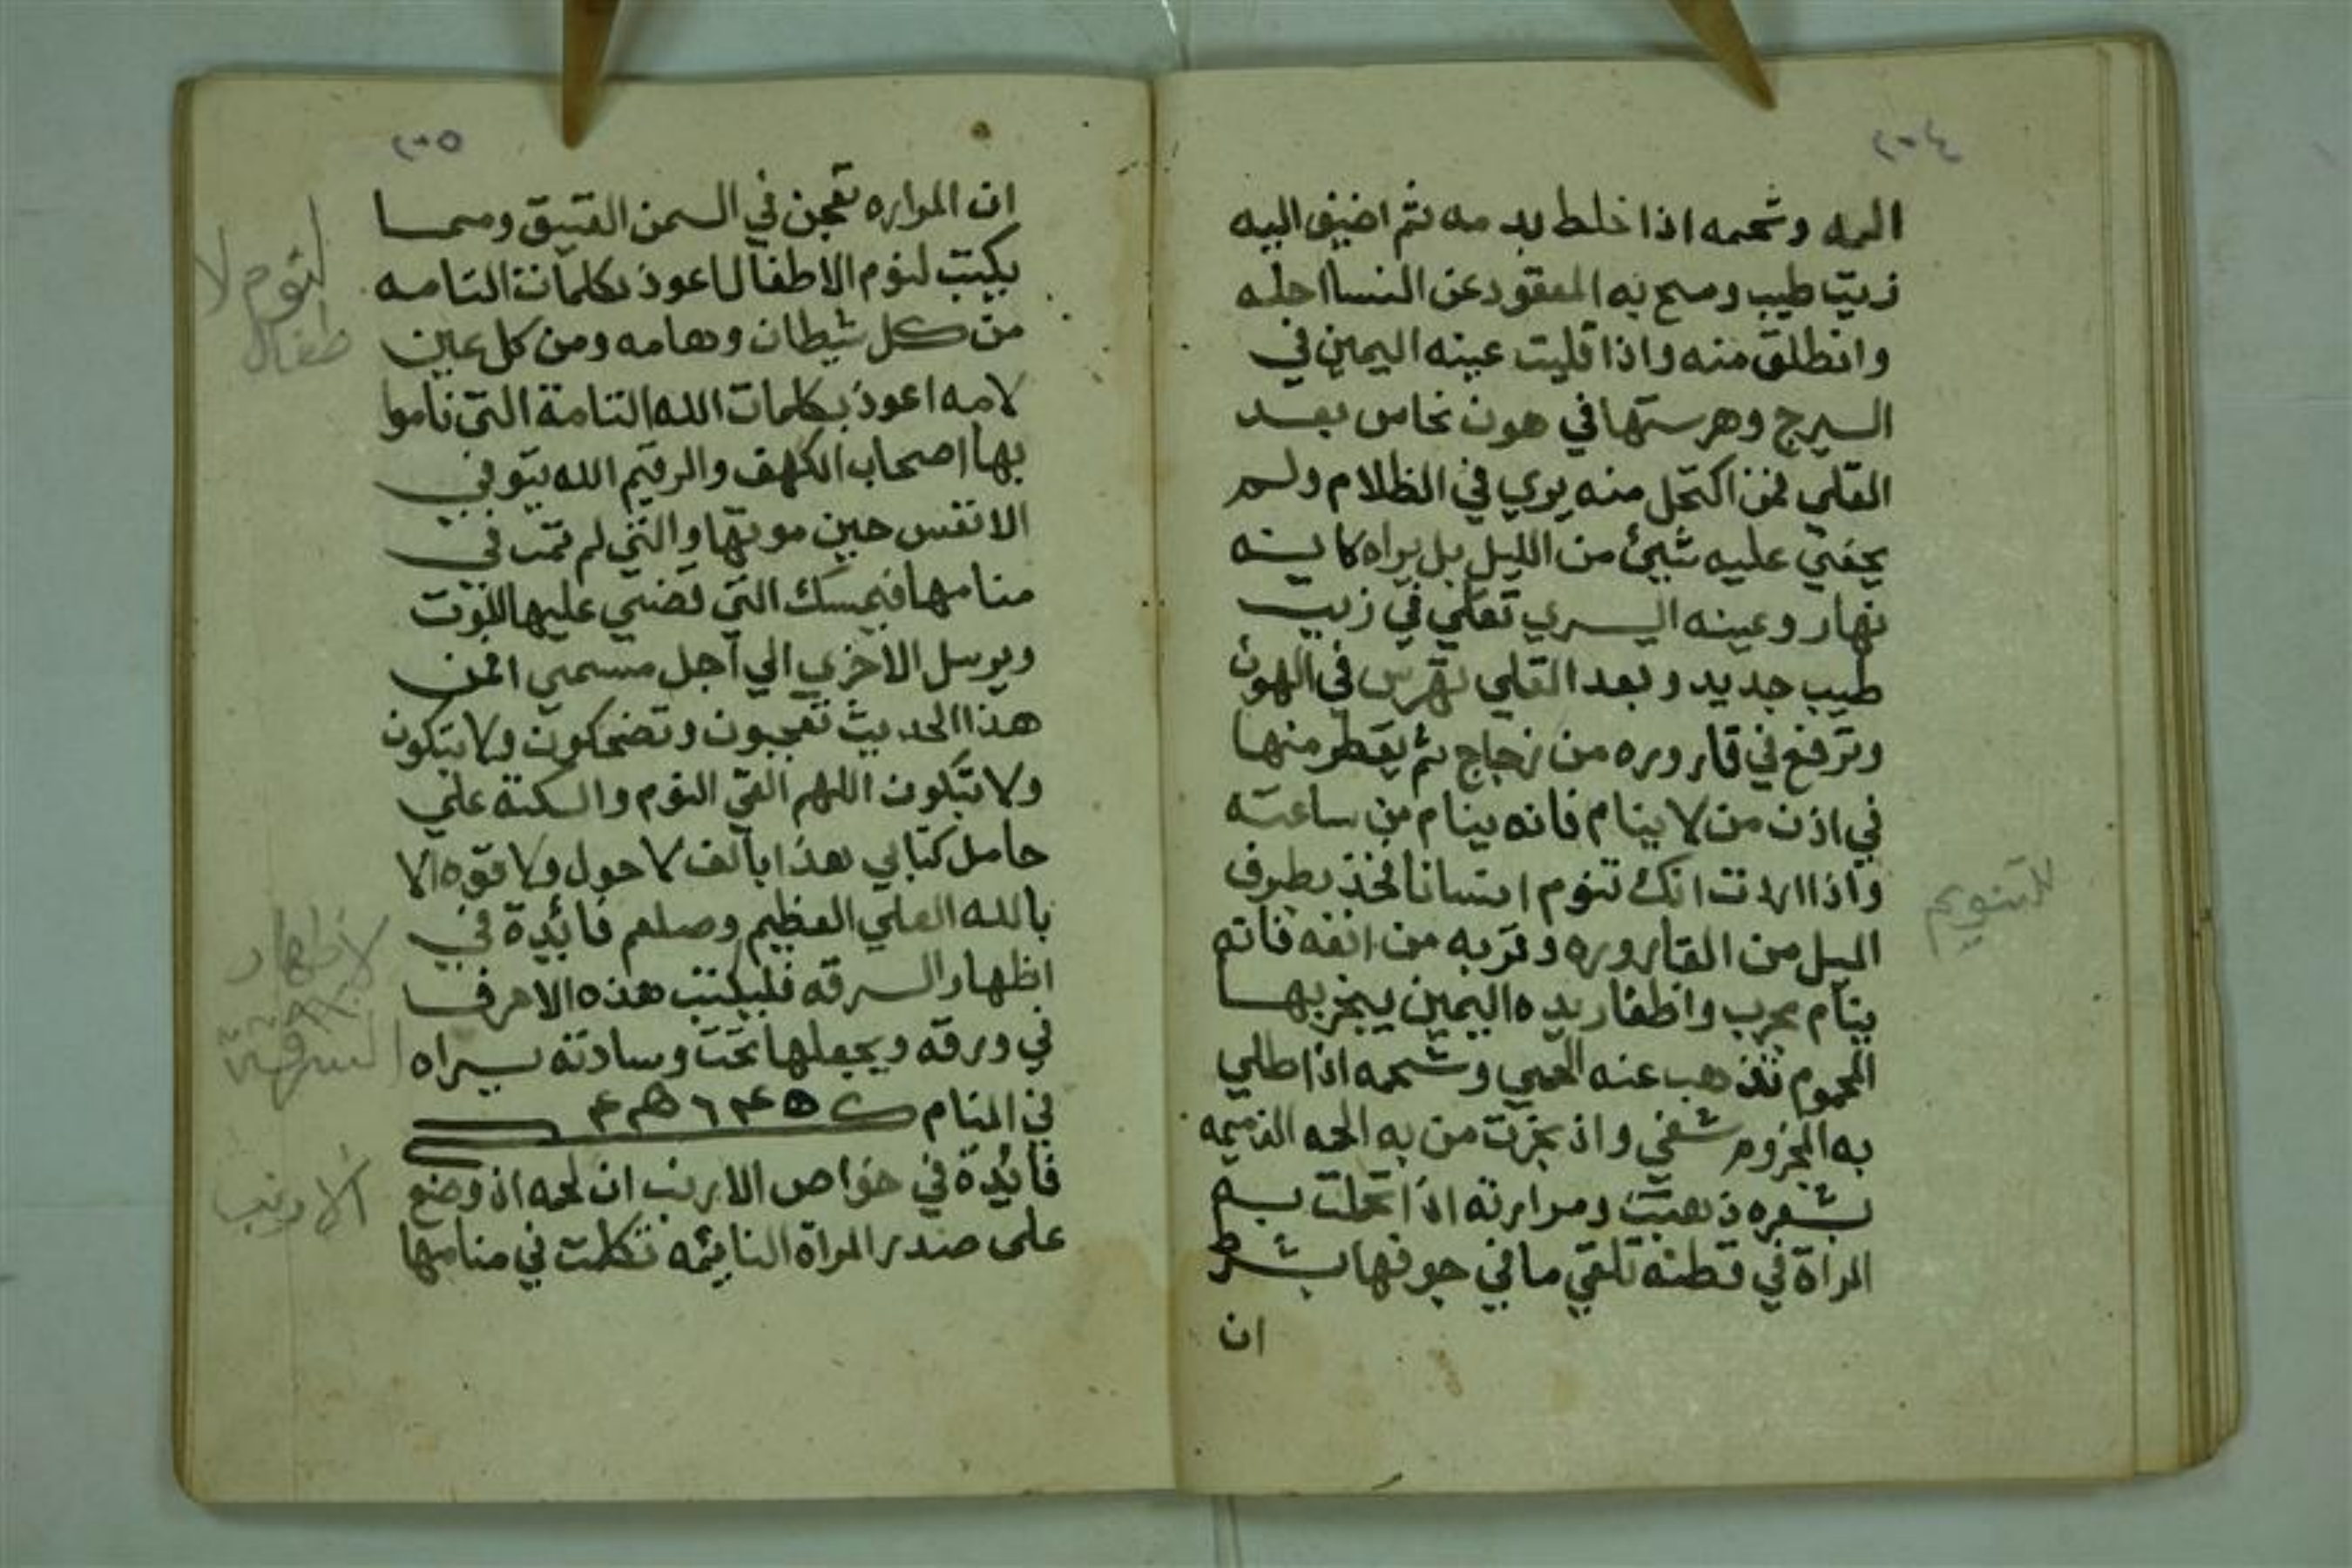 ٢٠٤
اليه وشحمه اذا خلط بدمه ثم اضيف اليه
زيت طيب ومسح به المعقود عن النسا احله
وانطلق منه واذا قليت عينه اليمين في
السيرج وهرستها في هون نحاس بعد
القلي فمن اكتحل منه يري في الظلام ولم
يخفي عليه شيئ من الليل بل يراه كانه
نهار وعينه اليسري تقلي في زيت
طيب جديد وبعد القلي تهرس في الهون
وترفع في قاروره من زجاج ثم يقطر منها
في اذن من لا ينام فانه ينام من ساعته
واذا اردت انك تنوم انسانا فخذ بطرف
الميل من القاروره وقربه من انفه فانه
ينام مجرب واظفار يده اليمين يبخر بها
المحموم تذهب عنه الحمي وشحمه اذا طلي
به المجزوم شفي واذ بخرت من به الحمه
بشعره ذهبت ومرارته اذا تحملت بهم
المراة في قطنه تلقي ما في جوفها بشرط
ان
للتنويم
٢٠٥
ان المراره تعجن في السمن العتيق ومما
يكتب لنوم الاطفال اعوذ بكلمات التامه
من كل شيطان وهامه ومن كل عين
لامه اعوذ بكلمات الله التامة التي ناموا
بها اصحاب الكهف والرقيم الله يتوفي
الانفس حين موتها والتي لم تمت في
منامها فيمسك التي قضي عليها الموت
ويرسل الاخري الي اجل مسمي افمن
هذا الحديث تعجبون وتضحكون ولا تبكون
ولا تبكون اللهم القي النوم والسكتة علي
حامل كتابي هذا بالف لا حول ولا قوه الا
بالله العلي العظيم وصلعم فائدة في
اظهار السرقه فليكتب هذه الاحرف
في ورقه ويجعلها تحت وسادته يراه
في المنام
فائدة في خواص الارنب ان لحمه اذ وضع
على صدر المراة النايمه تكلمت في منامها
لنوم لا
طفال
لاظهار
السرقة
الارنب